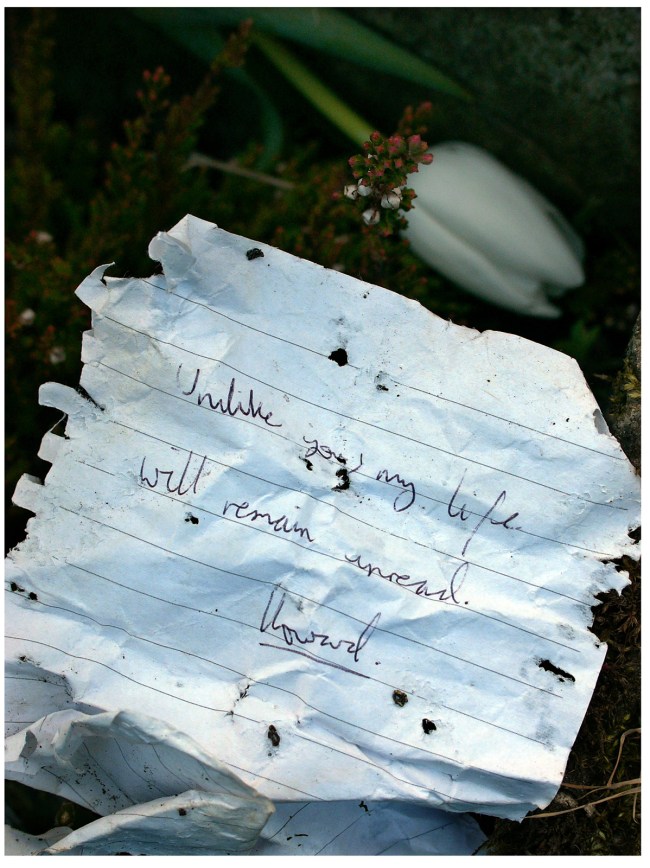 Unlike you, my life
will remain unread.
Howard.